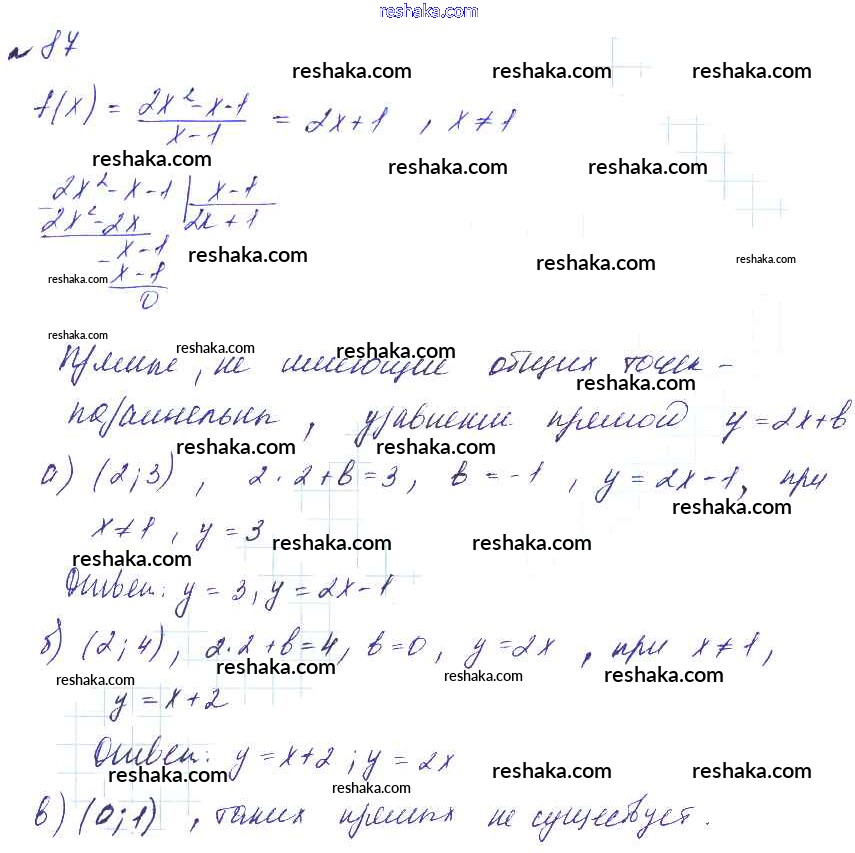 reshaka.com
№ 87
reshaka.com reshaka.com reshaka.com
f(x) = 2x² - x - 1 / x - 1 = 2x + 1 , x ≠ 1
reshaka.com reshaka.com reshaka.com
2x² - x - 1 | x - 1
2x² - 2x | 2x + 1
- x - 1
reshaka.com reshaka.com reshaka.com
x - 1
reshaka.com
0
reshaka.com reshaka.com reshaka.com
Прямые, не имеющие общих точек -
reshaka.com
параллельны, уравнение прямой y = 2x + b
reshaka.com reshaka.com
а) (2; 3), 2 · 2 + b = 3, b = -1, y = 2x - 1, при
reshaka.com
x ≠ 1, y = 3
reshaka.com reshaka.com reshaka.com
Ответ: y = 3, y = 2x - 1
б) (2; 4), 2·2 + b = 4, b = 0, y = 2x, при x ≠ 1,
reshaka.com reshaka.com reshaka.com reshaka.com
y = x + 2
Ответ: y = x + 2; y = 2x
reshaka.com reshaka.com reshaka.com
reshaka.com reshaka.com
в) (0; 1), таких прямых не существует.